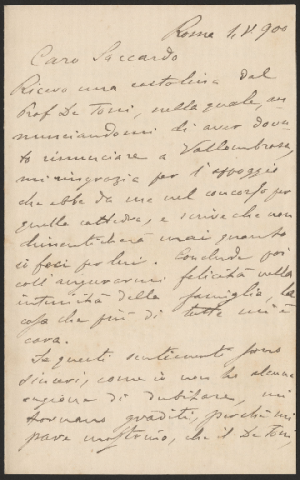 Roma 1, V 900
Caro Saccardo
Ricevo una cartolina del
Prof De Toni, nella quale, an
nunciandomi di aver dovu
to rinunciare a Vallombrosa,
mi ringrazia per l'appoggio
che ebbe da me nel concorso per
quella cattedra, e scrive che non
dimenticherà mai quanto
io feci per lui. Conclude poi
coll'augurarmi felicità nella
intimità della famiglia, la
cosa che più di tutte mi è
cara.
Se questi sentimenti sono
sinceri, come io non ho alcuna
ragione di dubitare, mi
tornano graditi, perchè mi
pare mostrino, che il De Toni,